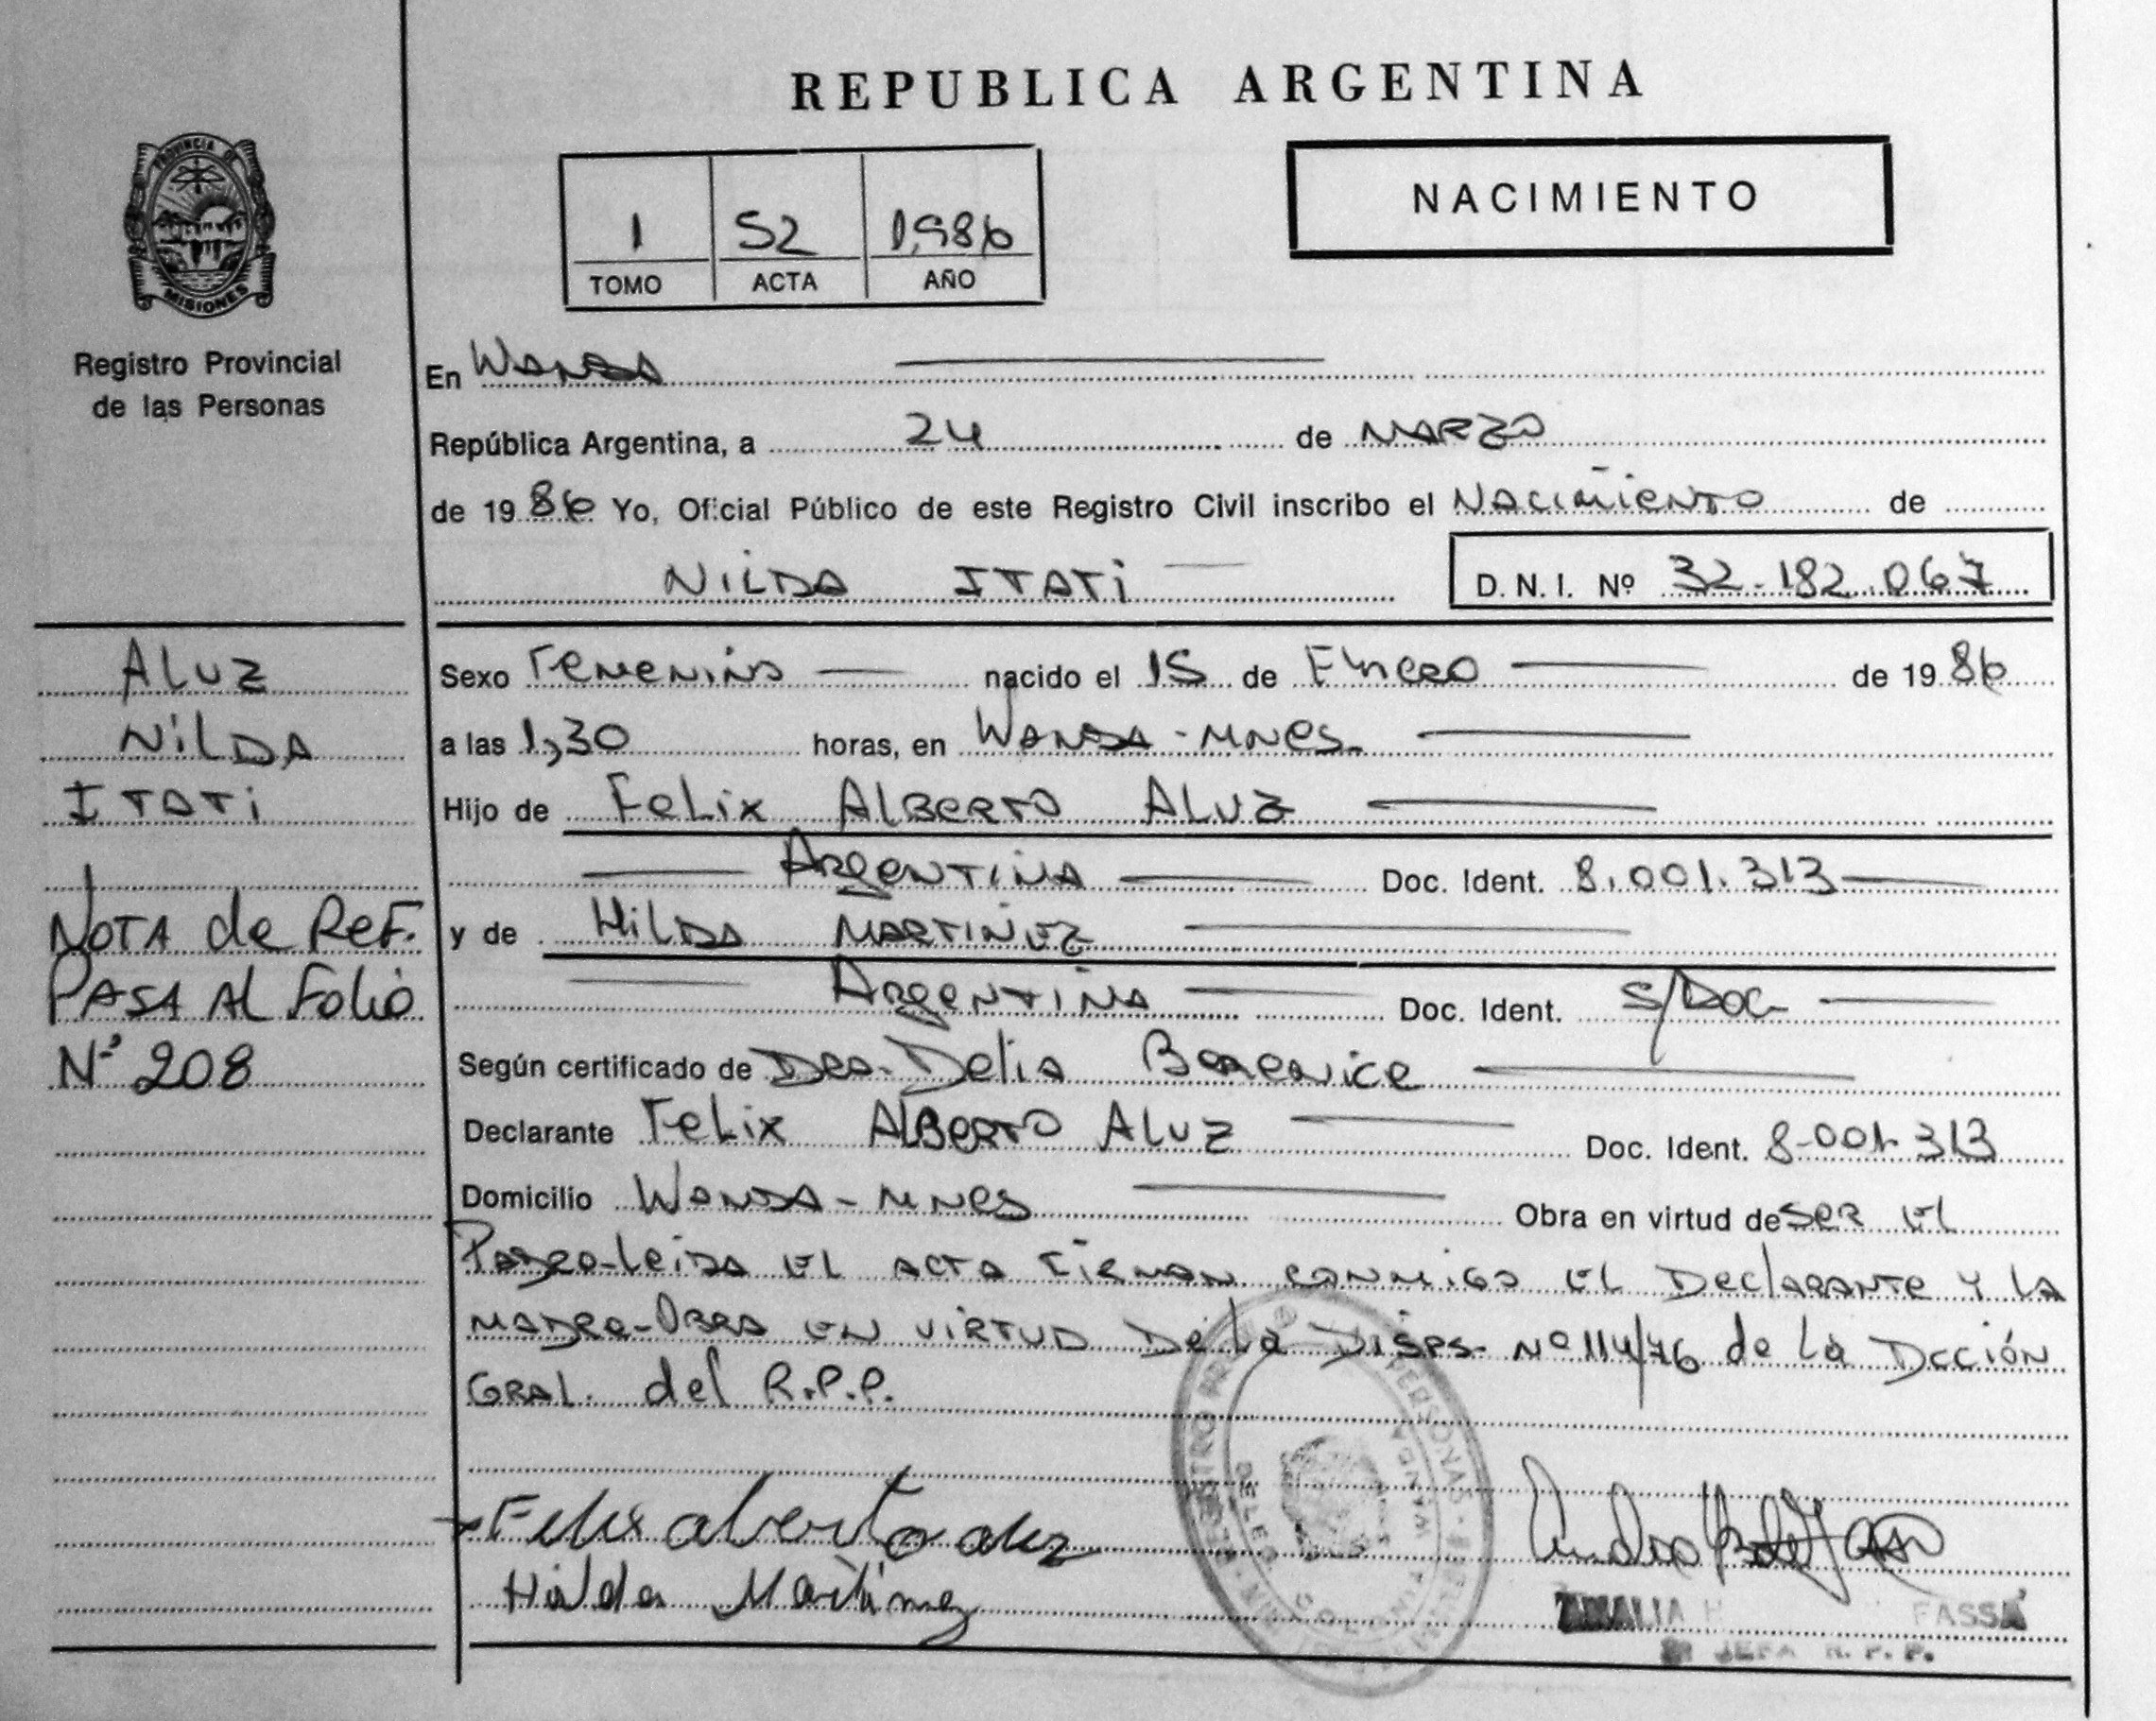 REPUBLICA ARGENTINA
PROVINCIA DE
MISIONES
Registro Provincial
de las Personas
1 52 1.986
TOMO ACTA AÑO
NACIMIENTO
En Wanda
República Argentina, a 24 de Marzo
de 1986 Yo, Oficial Público de este Registro Civil inscribo el Nacimiento de
Nilda Itati
D. N. I. Nº 32.182.067
Aluz
Nilda
Itati
Nota de Ref.
Pasa al Folio
Nº 208
Sexo Femenino nacido el 15 de Enero de 1986
a las 1,30 horas, en Wanda - Mnes.
Hijo de Felix Alberto Aluz
Argentina Doc. Ident. 8.001.313
y de Hilda Martinez
Argentina Doc. Ident. S/Doc
Según certificado de Dra. Delia Berenice
Declarante Felix Alberto Aluz Doc. Ident. 8-001-313
Domicilio Wanda - Mnes Obra en virtud de ser el
Padre-Leida el acta firman conmigo el Declarante y la
madre-Obra en virtud De la Disps. Nº 114/76 de la Dcción
Gral. del R.P.P.
Felix alberto aluz
Hilda Martinez
AMALIA H FASSA
JEFA R. P. P.